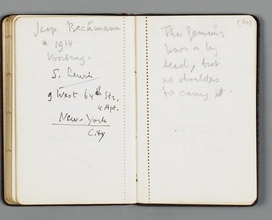 Jaap Beckmann
* 1914
S. Lewis
9 West 64th Str.
4 Apt.
New-York
City
The Germans
have a big
head, but
no shoulders
to carry it.